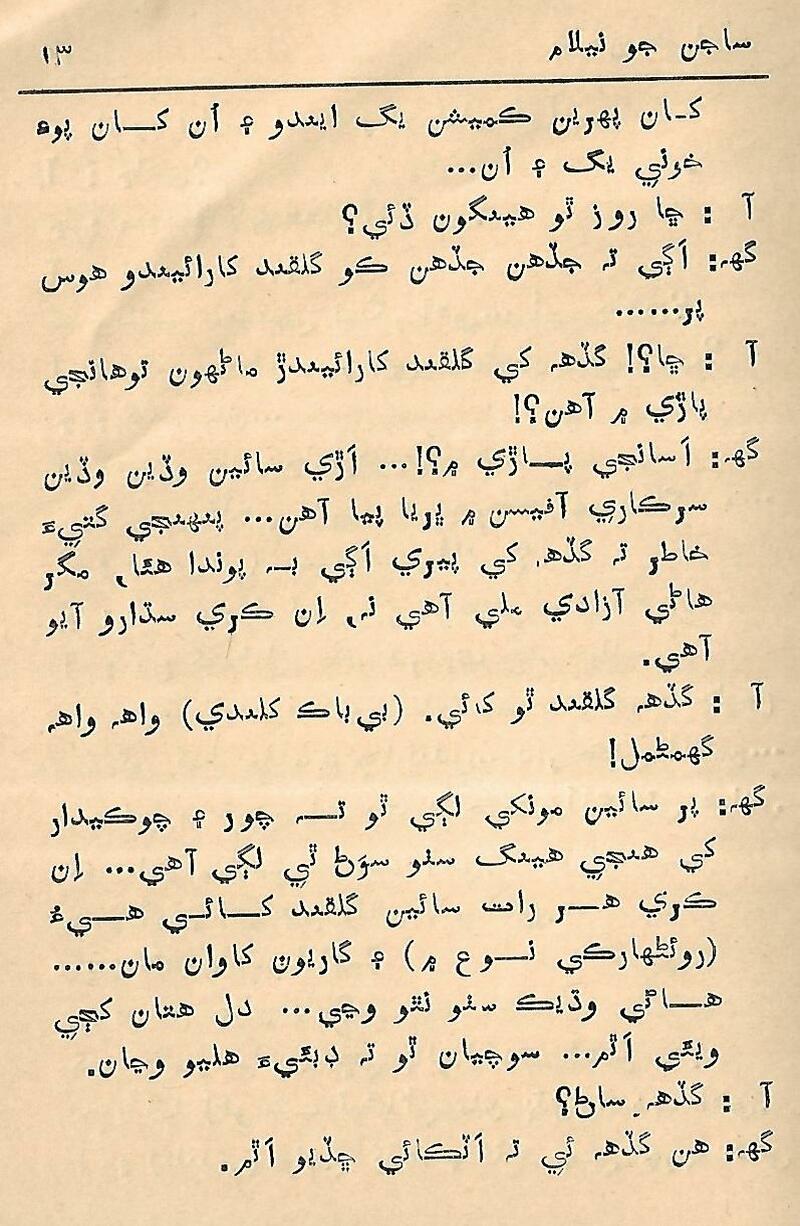 ساجن جو نيلام ۱۳
کان پھرين ڪميشن يگ ايندو ۽ اُن کان پوء
خوني يگ ۽ اُن...
آ : ڇا روز ٿو هينگون ڏئي؟
گهہ: اَڳي تہ جڏهن جڏهن ڪو گلقند کارائيندو هوس
پر......
آ : ڇا؟! گڏهہ کي گلقند کارائيندڙ ماڻهون توهانجي
پاڙي ۾ آهن؟!
گهہ: اَسانجي پاڙي ۾؟!... اَڙي سائين وڏين وڏين
سرڪاري آفيسن ۾ ڀريا پيا آهن... پنهنجي گتيءَ
خاطر تہ گڏهہ کي پيري اَڳي بہ پوندا هئا، مگر
هاڻي آزادي ملي آهي نہ، اِن ڪري سڌارو آيو
آهي.
آ : گڏهہ گلقند ٿو کائي. (بي باڪ کلندي) واهہ واهہ
گهمڻمل!
گهہ: پر سائين مونکي لڳي ٿو تہ چور ۽ چوڪيدار
کي هنجي هينگ سٺو سوَڻ ٿي لڳي آهي... اِن
ڪري هر رات سائين گلقند کائي هيءُ
(روئڻهارڪي نوع ۾) ۽ گاريون کاوان مان......
هاڻي وڌيڪ سٺو نٿو وڃي... دل هتان کڄي
ويئي اَٿم... سوچيان ٿو تہ ڊبئيءَ هليو وڃان.
آ : گڏهہ ساڻ؟
گهہ: هن گڏهہ ئي تہ اَٽڪائي ڇڏيو اَٿم.